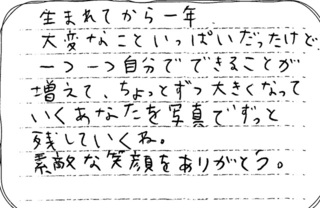 生まれてから一年
大変なこといっぱいだったけど
一つ一つ自分でできることが
増えて、ちょっとずつ大きくなって
いくあなたを写真でずっと
残していくね。
素敵な笑顔をありがとう。